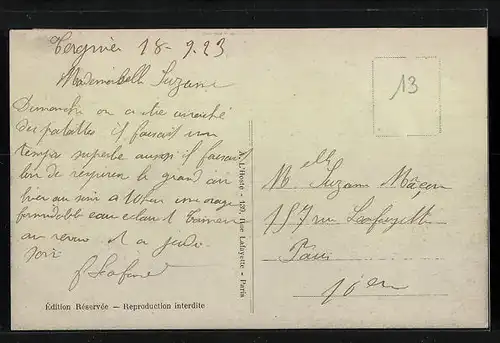 Tergnier 18-9.23
Mademoiselle Suzanne
Dimanche on a été arraché
des patates il faisait un
temps superbe aussi il faisait
bon de respirer le grand air
hier au soir a 10 heur un orage
formidable eau eclaire et
au revoir et a jeudi
soir
13
Melle Suzanne Mâcon
157 rue Lafayette
Paris
10 em
A. L'Hoste - 139, rue Lafayette - Paris
Édition Réservée — Reproduction interdite